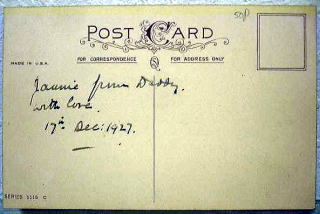 50p
POST CARD
MADE IN U.S.A.
FOR CORRESPONDENCE
FOR ADDRESS ONLY
Jannie from Daddy.
with love.
17th Dec: 1927.
SERIES 1116 C